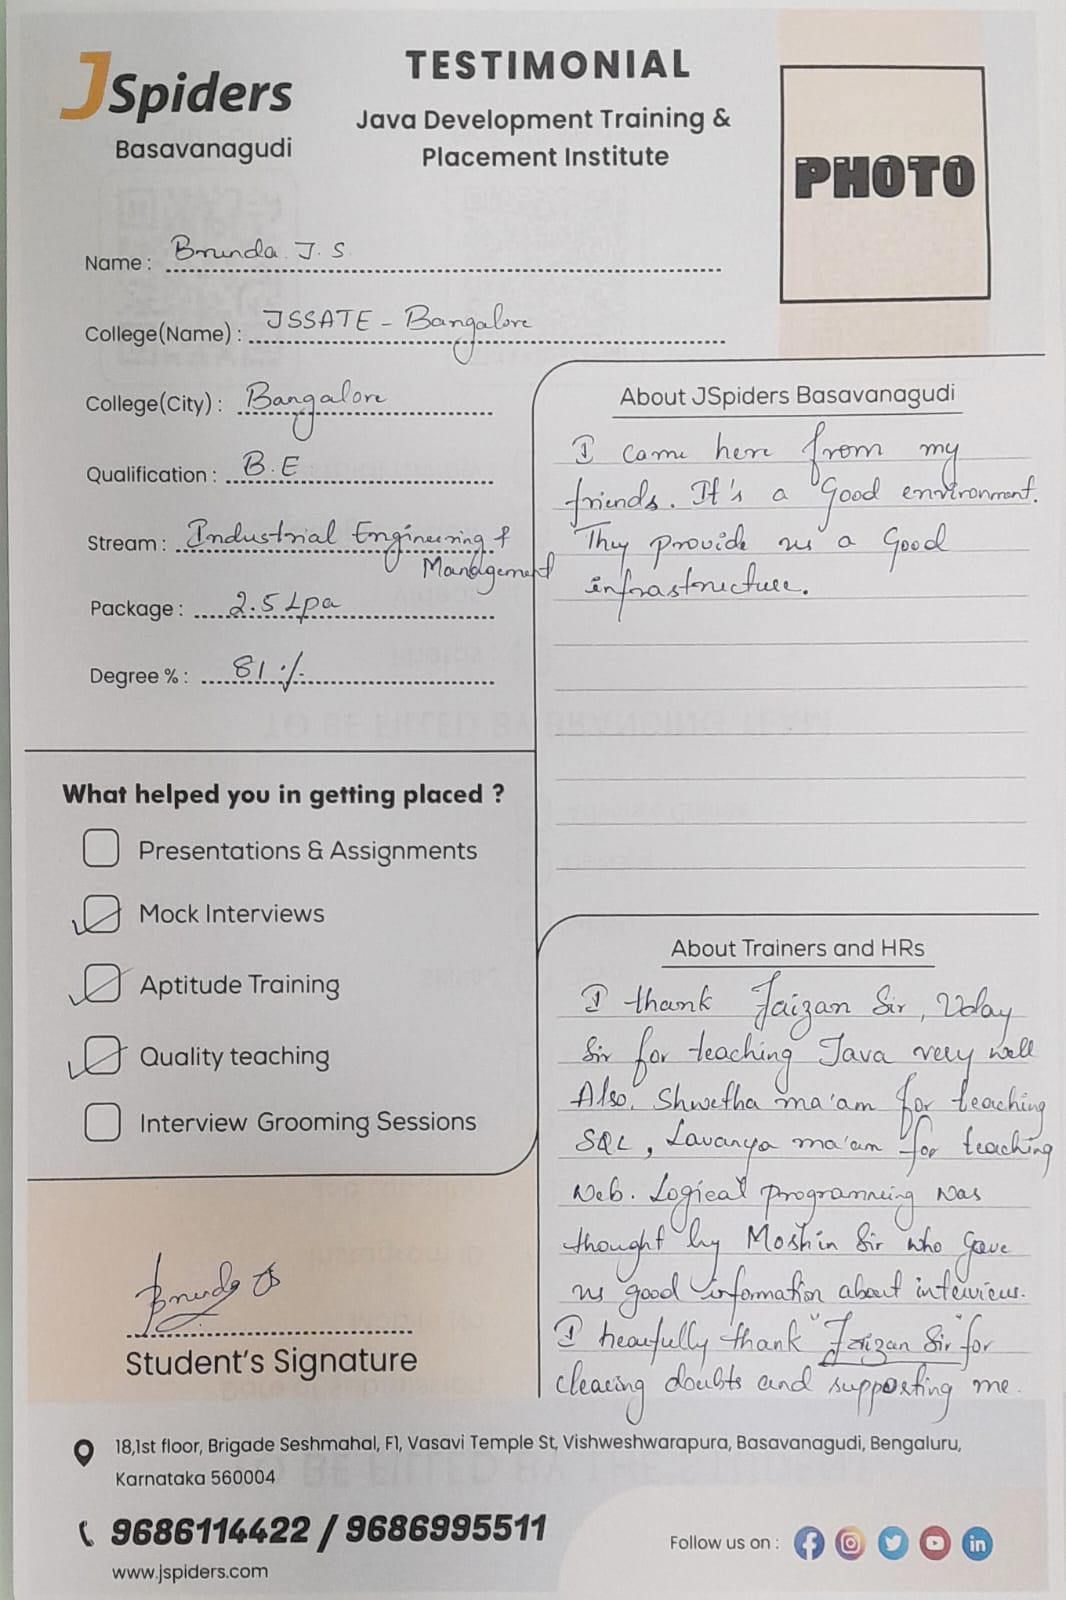 JSpiders
Basavanagudi
TESTIMONIAL
Java Development Training &
Placement Institute
PHOTO
Name : Brunda J.S.
College(Name) : JSSATE - Bangalore
College(City) : Bangalore
Qualification : B.E
Stream : Industrial Engineering &
Management
Package : 2.5 Lpa
Degree % : 81 %
What helped you in getting placed ?
Presentations & Assignments
Mock Interviews
Aptitude Training
Quality teaching
Interview Grooming Sessions
Brunda JS
Student's Signature
About JSpiders Basavanagudi
I came here from my
friends. It's a Good environment.
They provide us a Good
infrastructure.
About Trainers and HRs
I thank Faizan Sir, Uday
Sir for teaching Java very well
Also, Shwetha ma'am for teaching
SQL, Lavanya ma'am for teaching
Web. Logical programming was
thought by Moshin Sir who gave
us good information about interviews.
I heartfully thank "Faizan Sir" for
clearing doubts and supporting me.
18,1st floor, Brigade Seshmahal, F1, Vasavi Temple St, Vishweshwarapura, Basavanagudi, Bengaluru,
Karnataka 560004
9686114422 / 9686995511
www.jspiders.com
Follow us on :